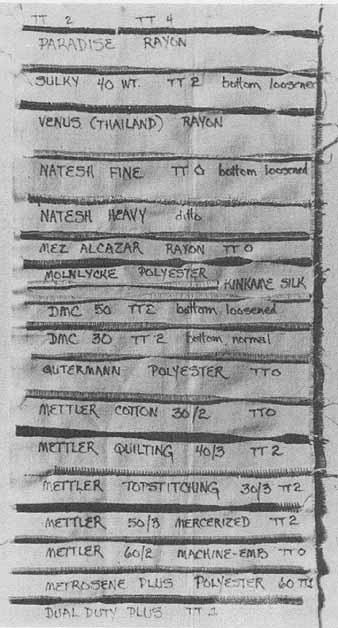 TT 2 TT 4
PARADISE RAYON
SULKY 40 WT. TT 2 bottom loosened
VENUS (THAILAND) RAYON
NATESH FINE TT 0 bottom loosened
NATESH HEAVY ditto
MEZ ALCAZAR RAYON TT 0
MOLNLYCKE POLYESTER
KINKAME SILK
DMC 50 TT2 bottom, loosened
DMC 30 TT 2 bottom, normal
GUTERMANN POLYESTER TT0
METTLER COTTON 30/2 TT0
METTLER QUILTING 40/3 TT 2
METTLER TOPSTITCHING 30/3 TT 2
METTLER 50/3 MERCERIZED TT 2
METTLER 60/2 MACHINE-EMB TT 0
METROSENE PLUS POLYESTER 60 TT1
DUAL DUTY PLUS TT 1